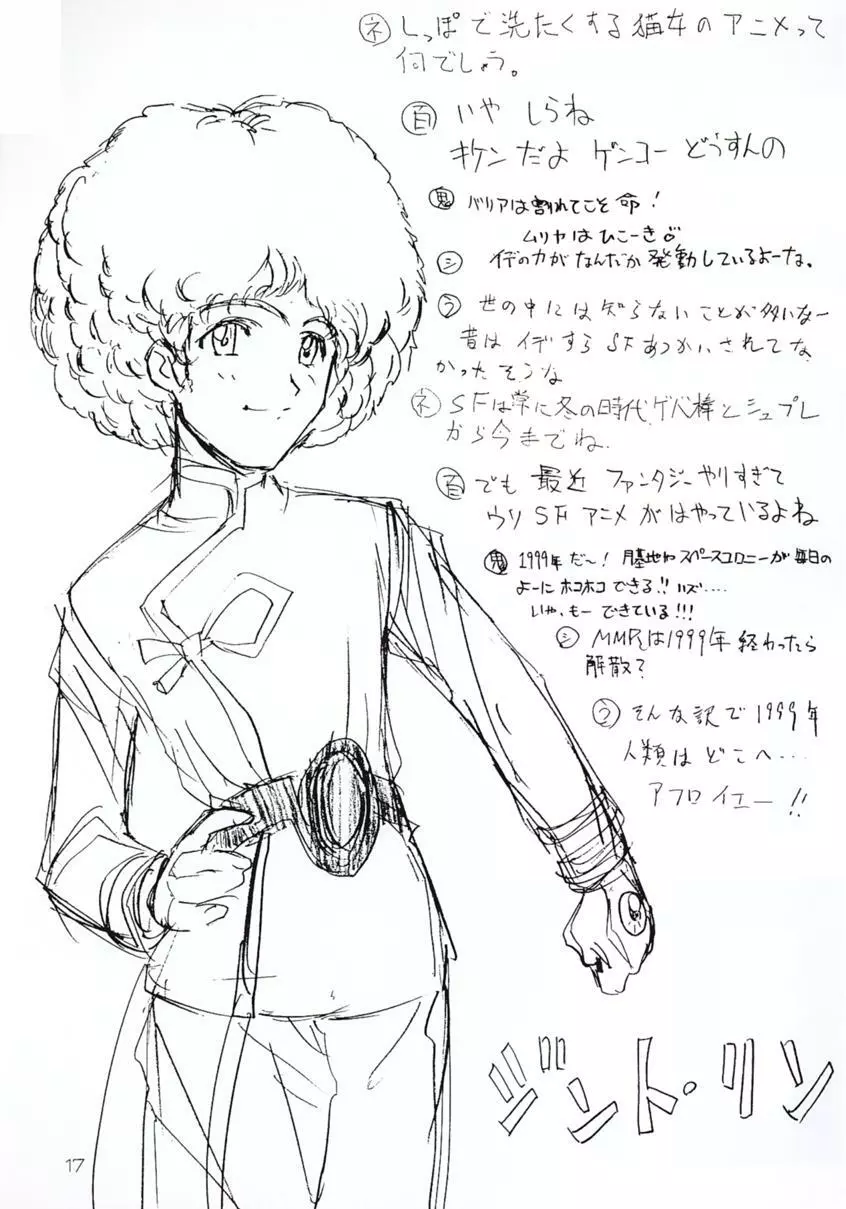 ネ しっぽで洗たくする猫女のアニメって
何でしょう。
百 いや しらね
キケンだよ ゲンコー どうすんの
鬼 バリアは割れてこそ命!
ムリヤはひこーき♂
シ イデの力がなんだか発動しているよーな。
う 世の中には知らないことが多いなー
昔はイデすらSFあつかいされてな
かったそうな
ネ SFは常に冬の時代、ゲバ棒とシュプレ
から今までね.
百 でも 最近 ファンタジーやりすぎて
ウリ SFアニメがはやっているよね
鬼 1999年だ〜! 月基地やスペースコロニーが毎日の
よーにホコホコできる!! ハズ....
いや、もー できている!!!
シ MMRは1999年 終わったら
解散?
う そんな訳で1999年
人類はどこへ...
アフロイエー!!
ジント・リン
17